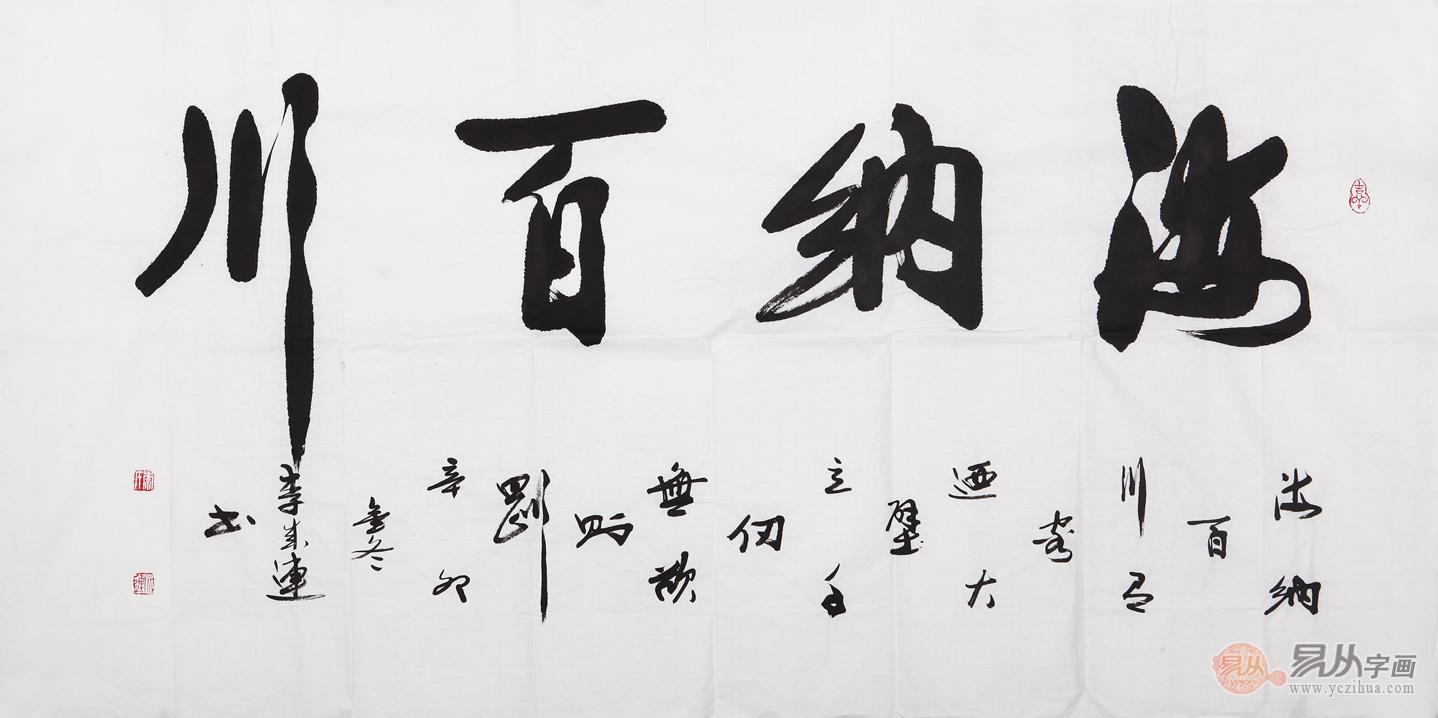 海納百川
海納
百
川有
容
迺大
壁
立千
仞
無欲
則
剛
辛卯
金冬
李成連
书
易从
易从字画
www.yczihua.com